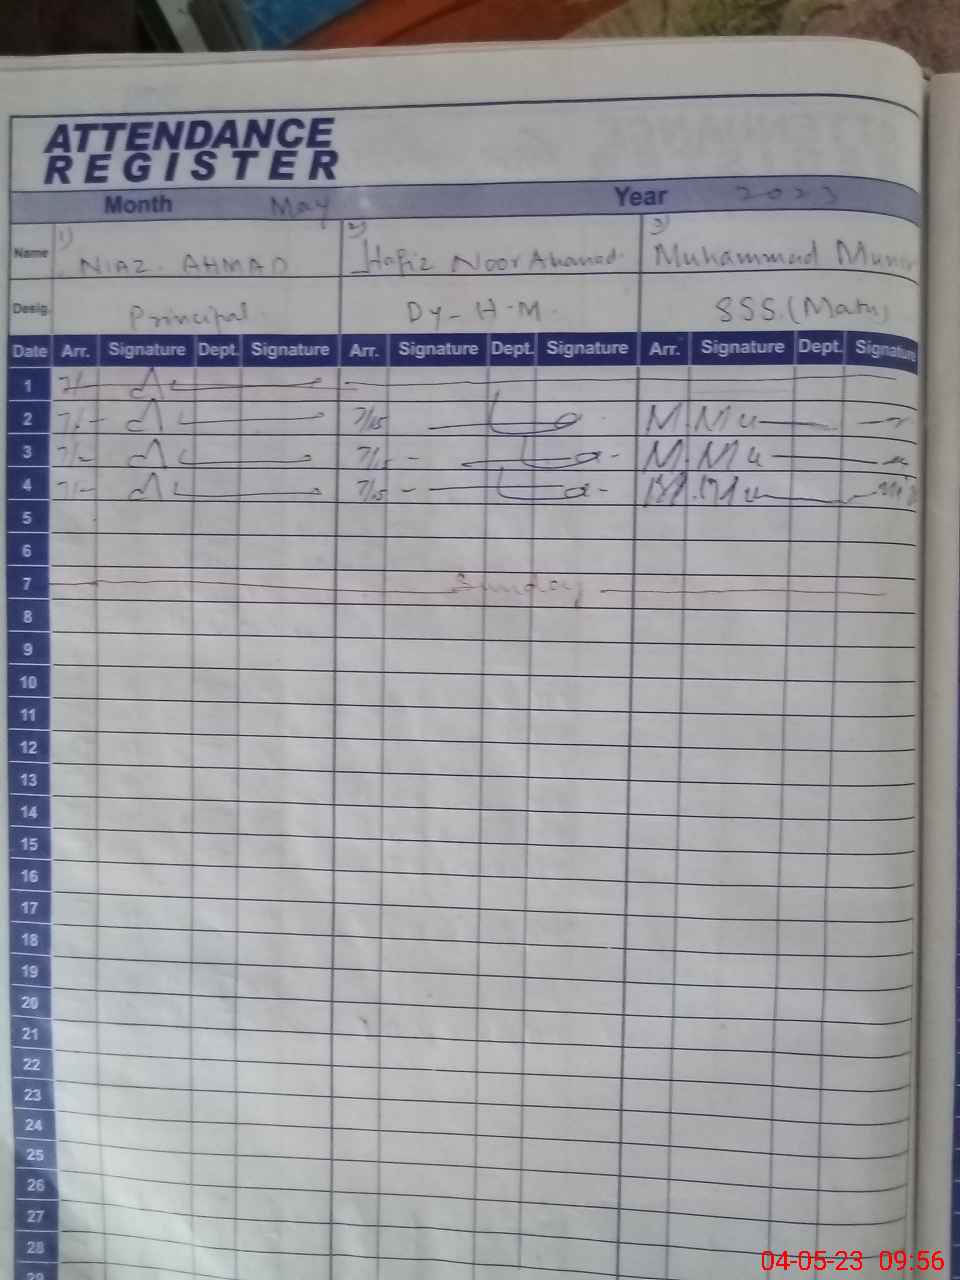 ATTENDANCE
REGISTER
Month May Year 2023
1) 2) 3)
Name NIAZ. AHMAD Hafiz Noor Ahamad. Muhammad Munir
Desig. Principal. Dy-H-M. SSS.(Math)
Date Arr. Signature Dept. Signature Arr. Signature Dept. Signature Arr. Signature Dept. Signature
1
2 7/15 M.Mu
3 M.Mu
4 7/15
5
6
7 Sunday
8
9
10
11
12
13
14
15
16
17
18
19
20
21
22
23
24
25
26
27
28
29
04-05-23 09:56